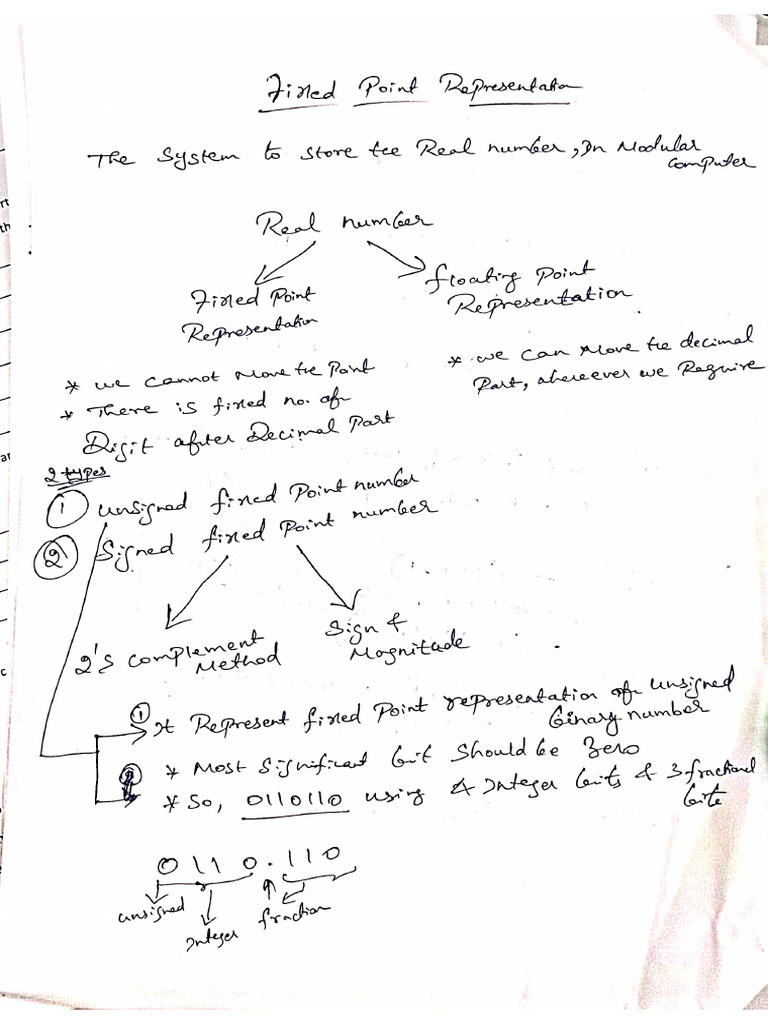 Fixed Point Representation
The System to store the Real number, In Modular
computer
Real number
Fixed Point
Representation
floating Point
Representation
* we cannot move the Point
* There is fixed no. of
Digit after Decimal Part
* we can Move the decimal
Part, whereever we Require
2 types
① unsigned fixed Point number
② Signed fixed Point number
2's complement
Method
Sign &
Magnitude
① It Represent fixed Point representation of unsigned
binary number
* Most Significant bit Should be Zero
* So, 0110110 using 4 Integer bits & 3 fractional
bits
0110.110
unsigned
Integer
fraction
rt
th
ar
c